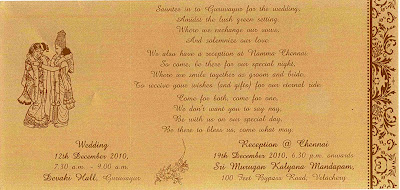 Saunter in to Guruvayur for the wedding,
Amidst the lush green setting.
Where we exchange our vows,
And solemnize our love.
We also have a reception at Namma Chennai.
So come, be there for our special night,
Where we smile together as groom and bride,
To receive your wishes (and gifts) for our eternal ride.
Come for both, come for one,
We don't want you to say nay,
Be with us on our special day,
Be there to bless us, come what may.
Wedding
12th December 2010,
7.30 a.m. - 9.00 a.m.
Devaki Hall, Guruvayur
Reception @ Chennai
19th December 2010, 6.30 p.m. onwards
Sri Murugan Kalyana Mandapam,
100 Feet Bypass Road, Velachery